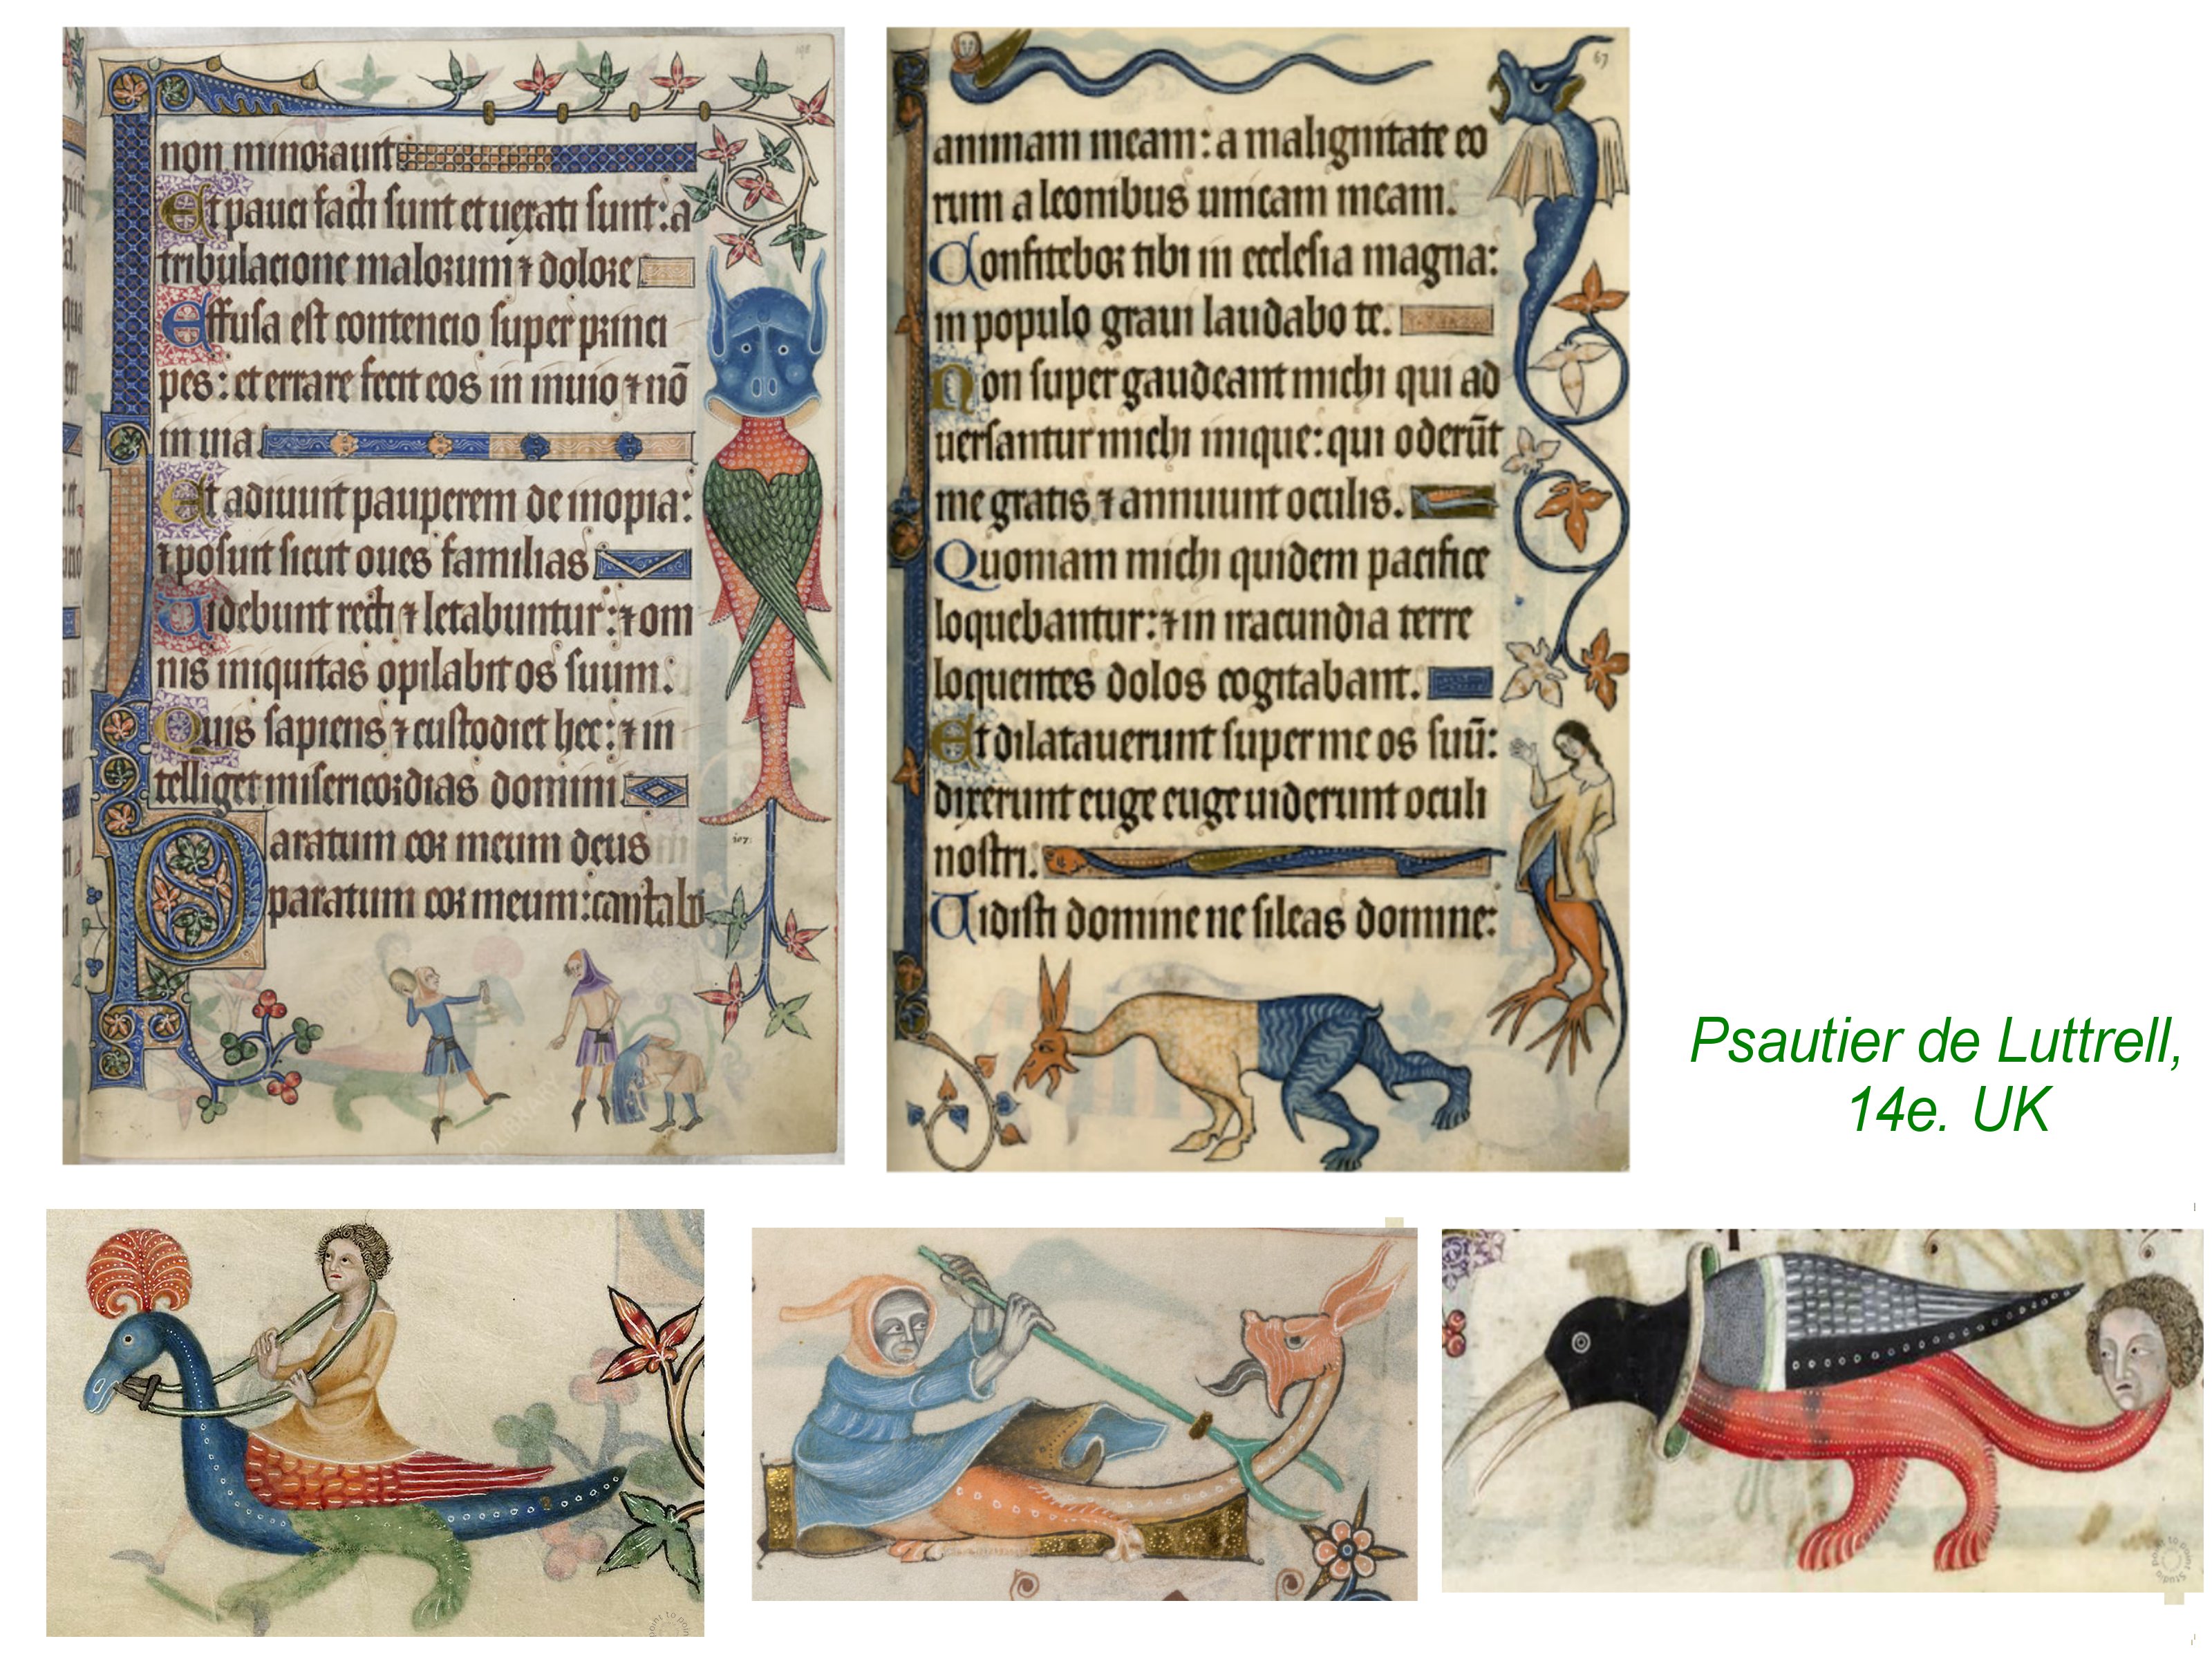 198
non minoraunt
Et pauci facti sunt et uexati sunt: a
tribulacione malorum ⁊ dolore
Effusa est contencio super princi
pes: et errare fecit eos in inuio ⁊ nō
in uia
Et adiuuit pauperem de inopia:
⁊ posuit sicut oues familias
Uidebunt recti ⁊ letabuntur: ⁊ om
nis iniquitas opilabit os suum.
Quis sapiens ⁊ custodiet hec: ⁊ in
telliget misericordias domini
Paratum cor meum deus
paratum cor meum: cantabo
107.
67
animam meam: a malignitate eo
rum a leonibus unicam meam.
Confitebor tibi in ecclesia magna:
in populo graui laudabo te.
Non super gaudeant michi qui ad
uersantur michi inique: qui oderūt
me gratis ⁊ annuunt oculis.
Quoniam michi quidem pacifice
loquebantur: ⁊ in iracundia terre
loquentes dolos cogitabant.
Et dilatauerunt super me os suū:
dixerunt euge euge uiderunt oculi
nostri.
Uidisti domine ne sileas domine:
Psautier de Luttrell,
14e. UK